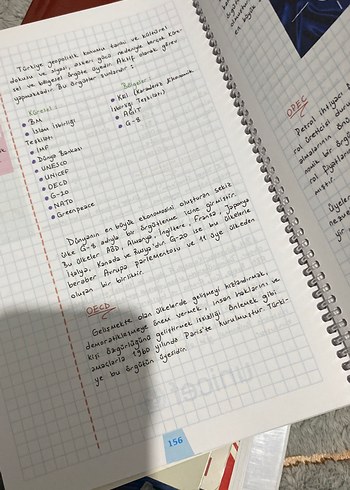 Türkiye jeopolitik konumu tarihi ve kültürel
dokusu ve siyasi, askeri gücü nedeniyle birçok küre-
sel ve bölgesel örgüte üyedir. Aktif olarak görev
yapmaktadır. Bu örgütler şunlardır :
Küresel
BM
İslam İşbirliği
Teşkilatı
IMF
Dünya Bankası
UNESCO
UNICEF
OECD
G-20
NATO
Greenpeace
Bölgesel
KEİ (Karadeniz Ekonomik
İşbirliği Teşkilatı)
AGİT
G-8
Dünyanın en büyük ekonomisini oluşturan sekiz
ülke G-8 adıyla bir örgütlenme içine girmiştir.
Bu ülkeler ABD, Almanya, İngiltere, Fransa, Japonya
İtalya, Kanada ve Rusya'dır. G-20 ise bu ülkelerle
beraber Avrupa Parlementosu ve 11 üye ülkeden
oluşan bir birliktir.
OECD
Gelişmekte olan ülkelerde gelişmeyi hızlandırmak,
demokratikleşmeye önem vermek, insan haklarını ve
kişi özgürlüğünü geliştirmek işsizliği önlemek gibi
amaçlarla 1960 yılında Paris'te kurulmuştur. Türki-
ye bu örgütün üyesidir.
156
OPEC
Petrol ihtiyacı